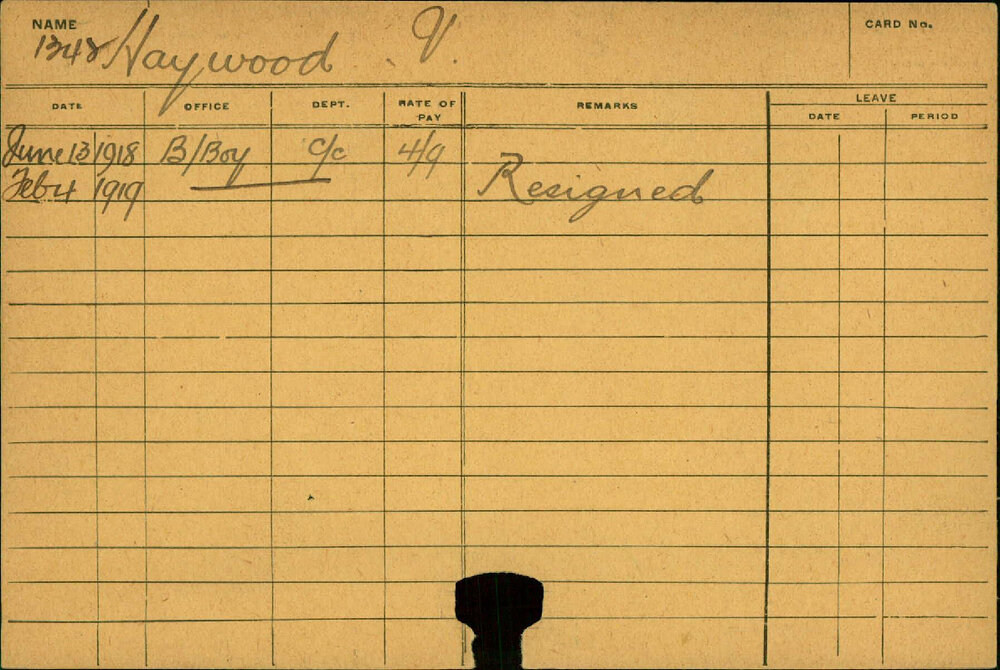 NAME
CARD No.
1348 Haywood V.
DATE OFFICE DEPT. RATE OF PAY REMARKS LEAVE
DATE PERIOD
June 13 1918 B/Boy C/c 4/9
Feb 4 1919 Resigned